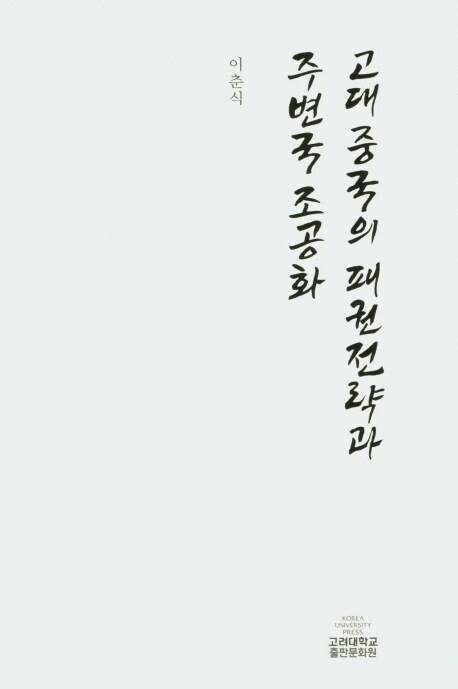 고대 중국의 패권전략과
주변국 조공화
이춘식
KOREA
UNIVERSITY
PRESS
고려대학교
출판문화원